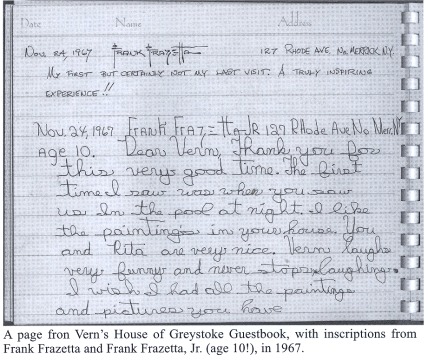 Date Name Address
Nov. 24, 1967 FRANK FRAZETTA 127 RHODE AVE. No. MERRICK N.Y.
MY FIRST BUT CERTAINLY NOT MY LAST VISIT. A TRULY INSPIRING
EXPERIENCE!!
Nov. 24, 1967 FranK FRAZETTA JR 127 Rhode Ave No. Mer, NY
Age 10. Dear Vernn, Thank you for
this very good time. The first
time I saw was when you saw
us In the pool at night. I like
the paintings in your house. You
and Rita are very nice. Vernn laughs
very funny and never stops laughing.
I wish I had all the paintings
and pictures you have
A page fron Vern's House of Greystoke Guestbook, with inscriptions from
Frank Frazetta and Frank Frazetta, Jr. (age 10!), in 1967.